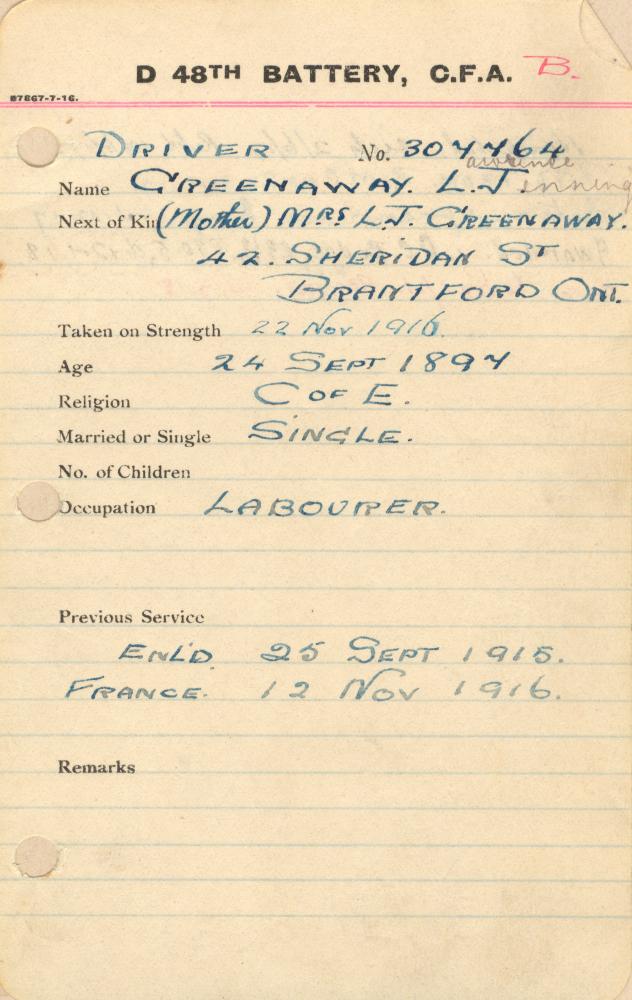 D 48TH BATTERY, C.F.A. B.
87867-7-16.
DRIVER No. 307764
awrence
Name GREENAWAY. L.J. enning
Next of Kin (Mother) MRS L.J. GREENAWAY.
42. SHERIDAN ST
BRANTFORD ONT.
Taken on Strength 22 Nov 1916.
Age 24 SEPT 1897
Religion C OF E.
Married or Single SINGLE.
No. of Children
Occupation LABOURER.
Previous Service
ENL'D. 25 SEPT 1915.
FRANCE. 12 NOV 1916.
Remarks